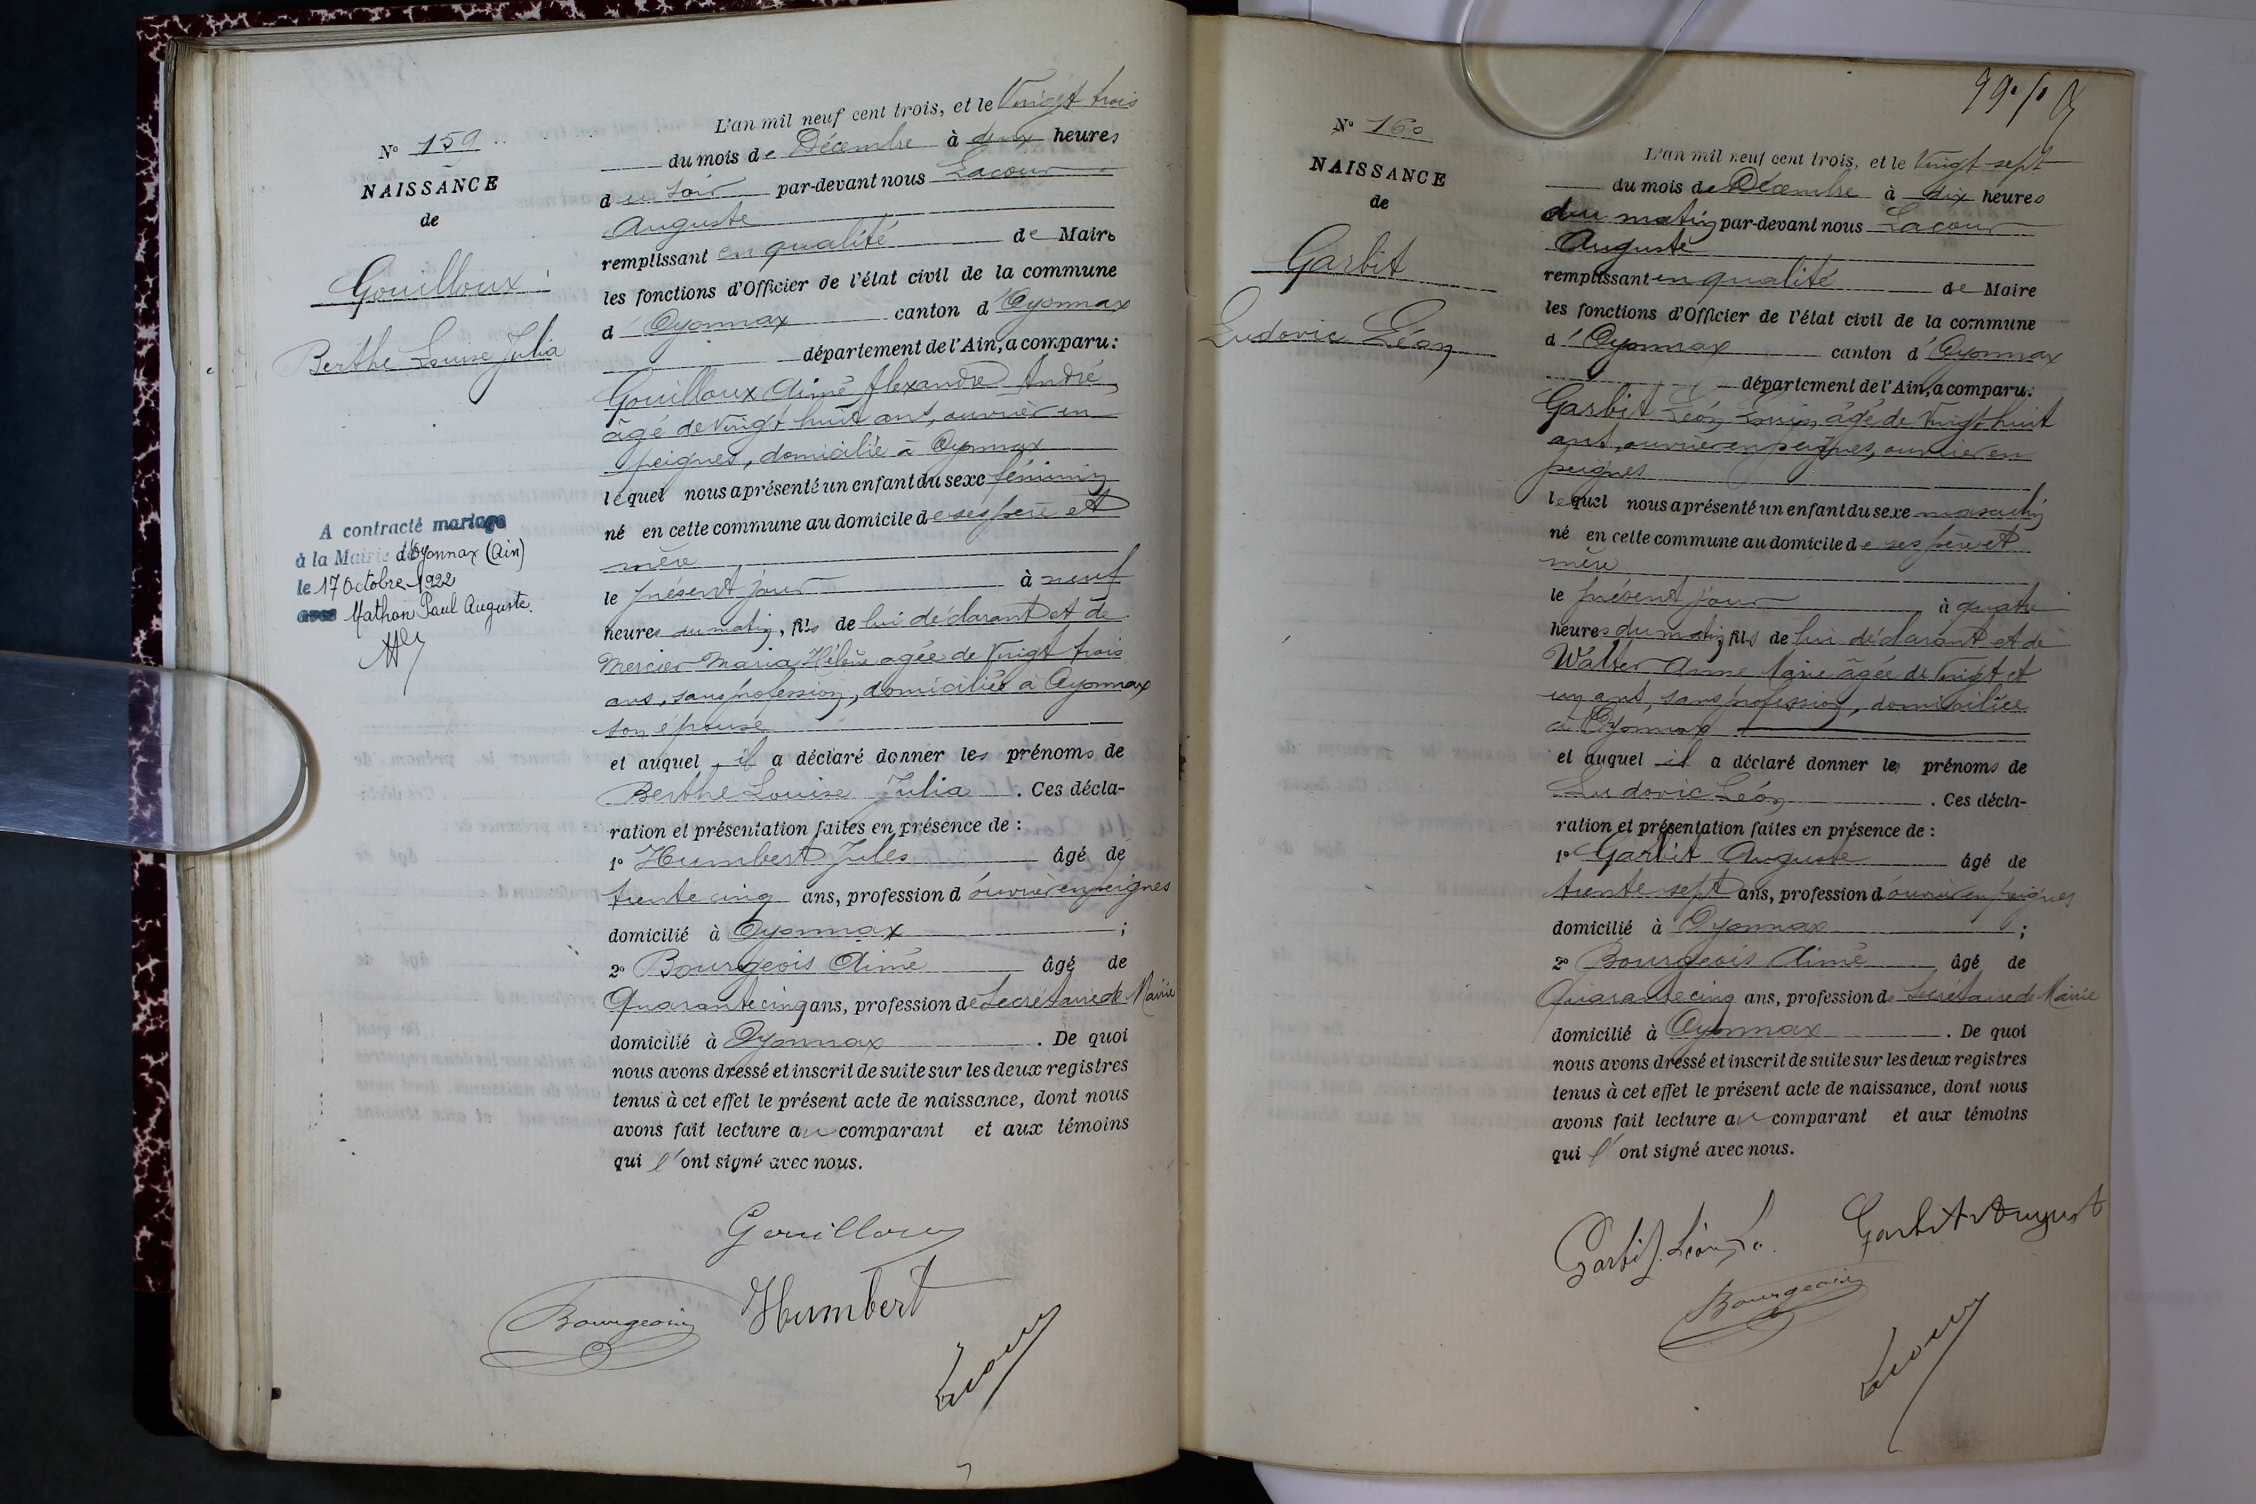 N° 159
NAISSANCE
de
Gouilloux
Berthe Louise Julia
A contracté mariage
à la Mairie d'Oyonnax (Ain)
le 17 Octobre 1922
avec Mathon Paul Auguste.
L'an mil neuf cent trois, et le Vingt trois
du mois de Décembre à deux heures
du soir par-devant nous Lacour
Auguste
remplissant en qualité de Maire
les fonctions d'Officier de l'état civil de la commune
d'Oyonnax canton d'Oyonnax
département de l'Ain, a comparu:
Gouilloux Aimé Alexandre André
âgé de Vingt huit ans, ouvrier en
peignes, domicilié à Oyonnax
lequel nous a présenté un enfant du sexe féminin
né en cette commune au domicile de ses père et
mère
le présent jour à neuf
heures du matin, fils de lui déclarant et de
Mercier Maria Hélène agée de Vingt trois
ans, sans profession, domiciliée à Oyonnax
son épouse
et auquel il a déclaré donner les prénoms de
Berthe Louise Julia. Ces décla-
ration et présentation faites en présence de :
1° Humbert Jules âgé de
trente cinq ans, profession d'ouvrier en peignes
domicilié à Oyonnax ;
2° Bourgeois Aimé âgé de
Quarante cinq ans, profession de Secrétaire de Mairie
domicilié à Oyonnax. De quoi
nous avons dressé et inscrit de suite sur les deux registres
tenus à cet effet le présent acte de naissance, dont nous
avons fait lecture au comparant et aux témoins
qui l'ont signé avec nous.
Gouilloux
Bourgeois Humbert
Lacour
N° 160
NAISSANCE
de
Garbit
Ludovic Léon
L'an mil neuf cent trois, et le Vingt-sept
du mois de Décembre à dix heures
du matin par-devant nous Lacour
Auguste
remplissant en qualité de Maire
les fonctions d'Officier de l'état civil de la commune
d'Oyonnax canton d'Oyonnax
département de l'Ain, a comparu:
Garbit Léon Louis âgé de Vingt huit
ans, ouvrier en peignes, ouvrier en
peignes
lequel nous a présenté un enfant du sexe masculin
né en cette commune au domicile de ses père et
mère
le présent jour à quatre
heures du matin, fils de lui déclarant et de
Walter Anne Marie âgée de Vingt et
un ans, sans profession, domiciliée
à Oyonnax
et auquel il a déclaré donner les prénoms de
Ludovic Léon. Ces décla-
ration et présentation faites en présence de :
1° Garbit Auguste âgé de
trente sept ans, profession d'ouvrier en peignes
domicilié à Oyonnax ;
2° Bourgeois Aimé âgé de
Quarante cinq ans, profession de Secrétaire de Mairie
domicilié à Oyonnax. De quoi
nous avons dressé et inscrit de suite sur les deux registres
tenus à cet effet le présent acte de naissance, dont nous
avons fait lecture au comparant et aux témoins
qui l'ont signé avec nous.
Garbit Léon Garbit August
Bourgeois
Lacour